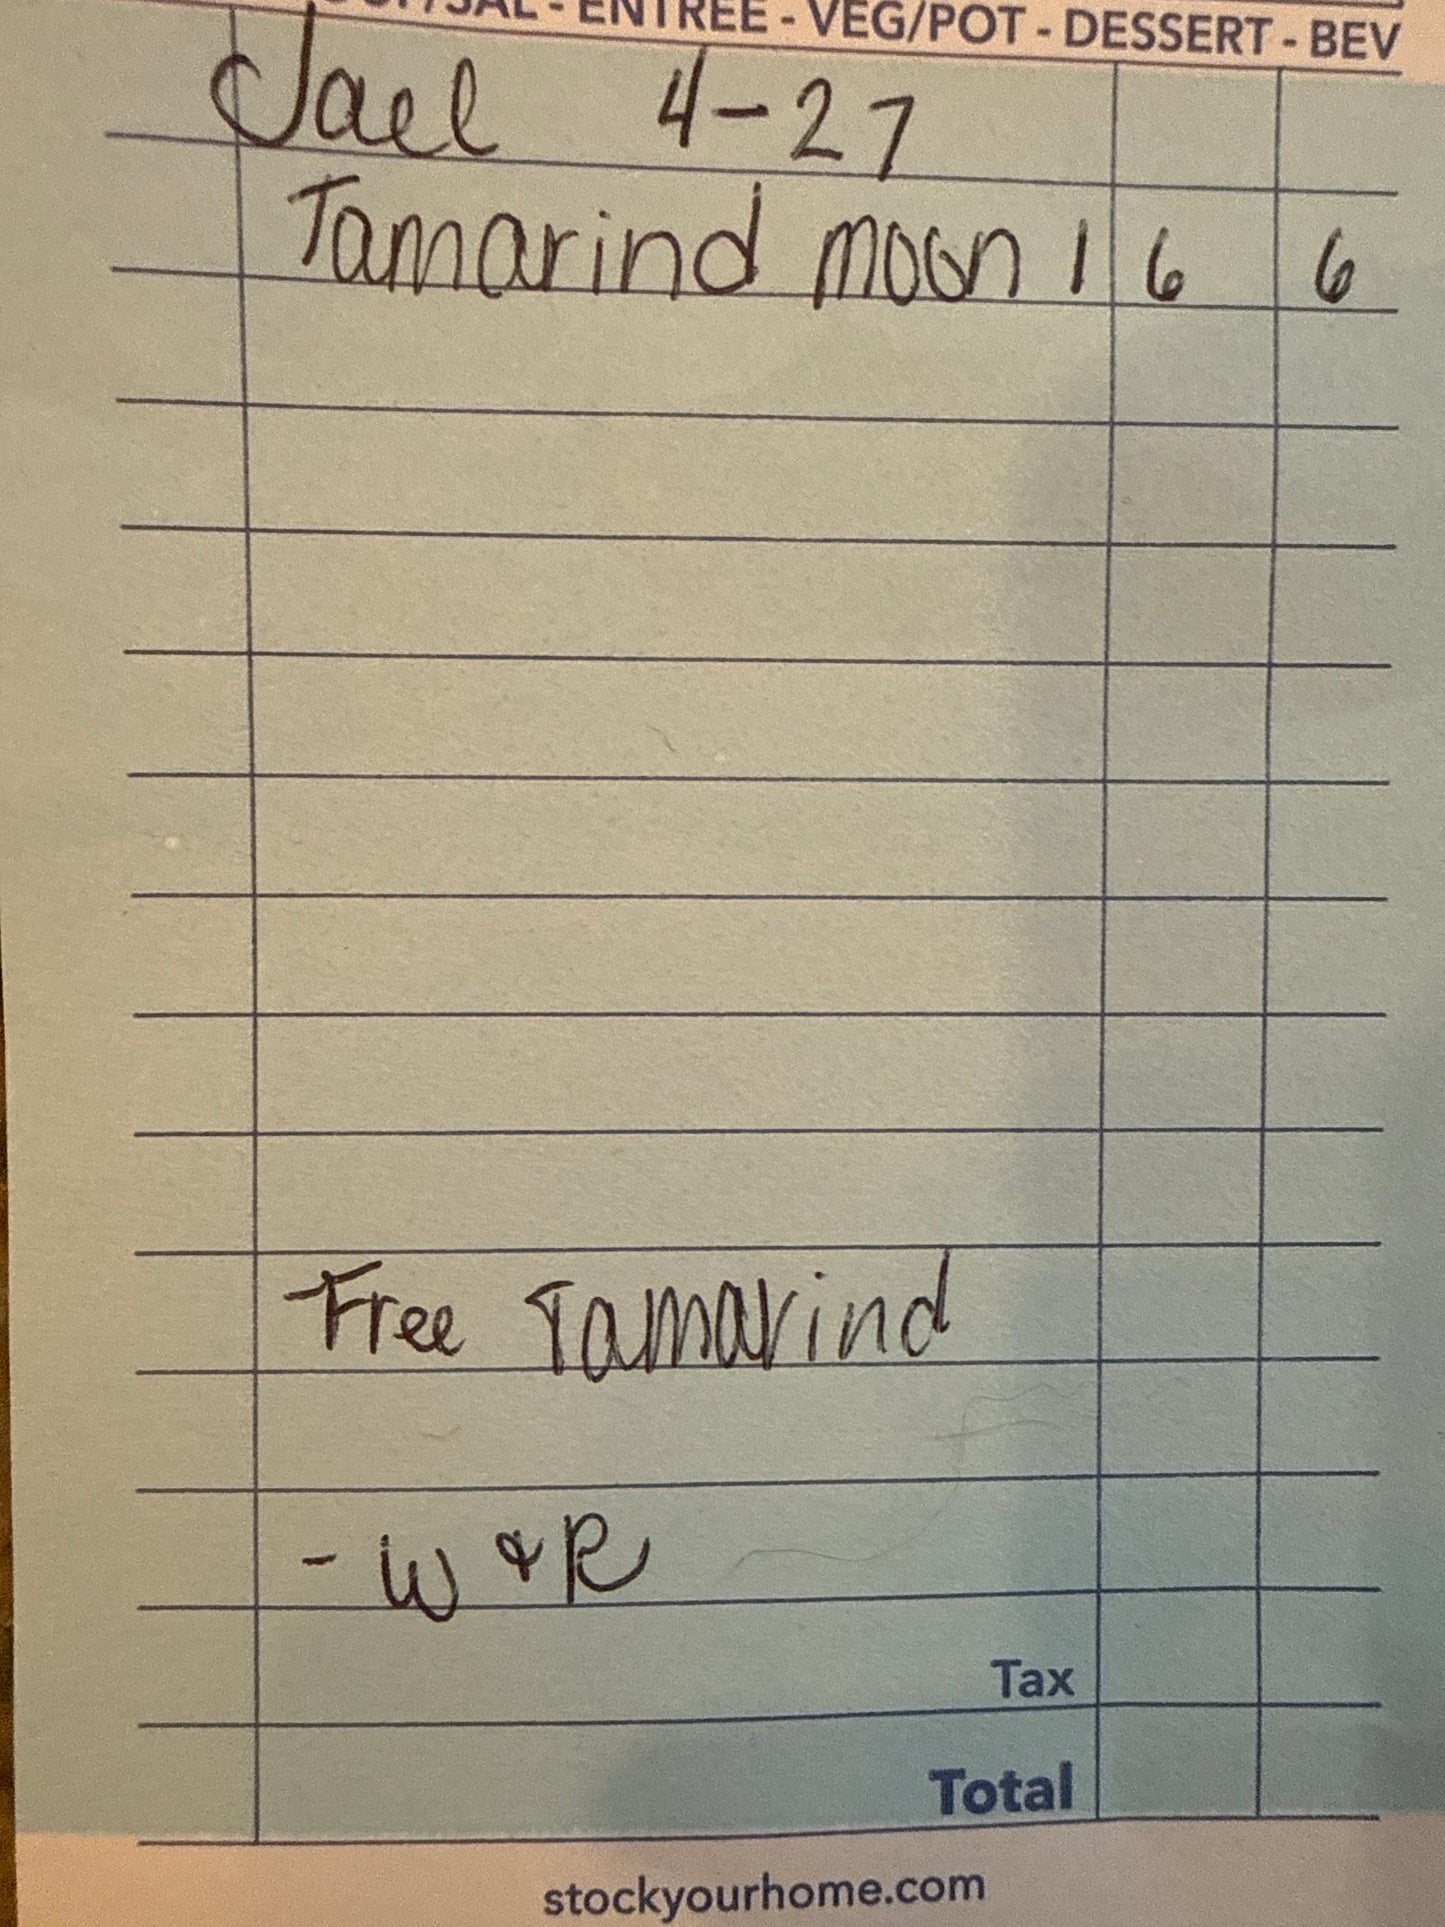 /SAL - ENTREE - VEG/POT - DESSERT - BEV
Jael 4-27
Tamarind moon 1 6 6
-Free Tamarind
- W & R
Tax
Total
stockyourhome.com